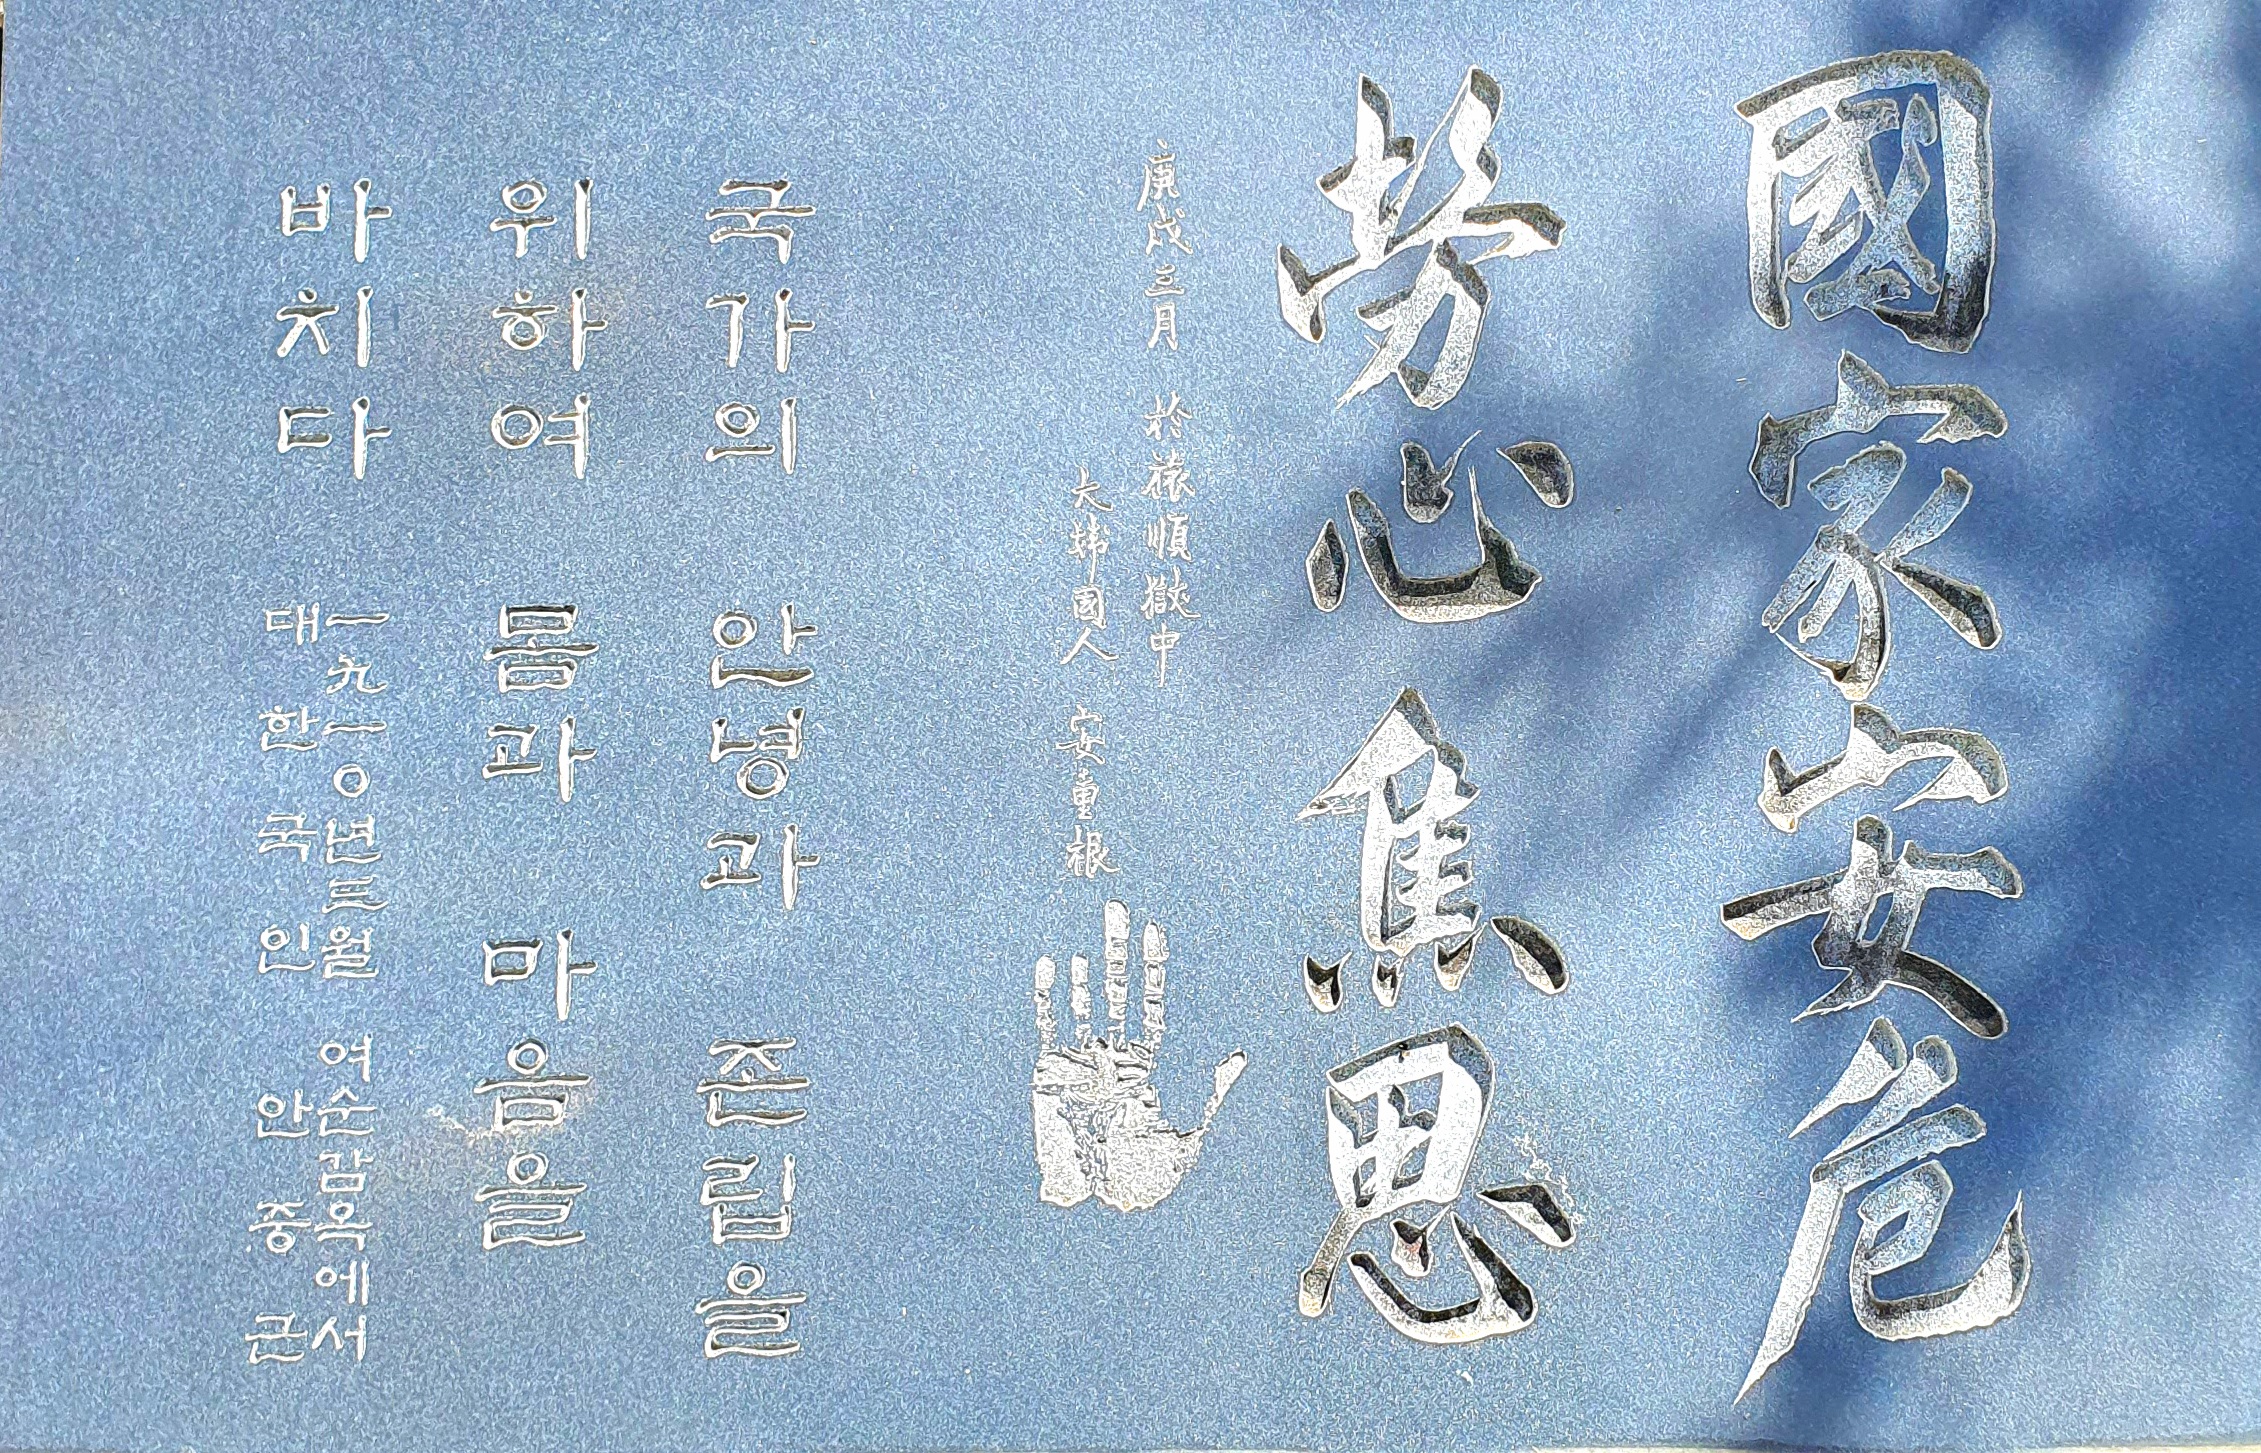 國家安危
勞心焦思
庚戌三月 於旅順獄中
大韓國人 安重根
국가의 안녕과 존립을
위하여 몸과 마음을
바치다
一九一○년 三월 여순감옥에서
대한국인 안중근